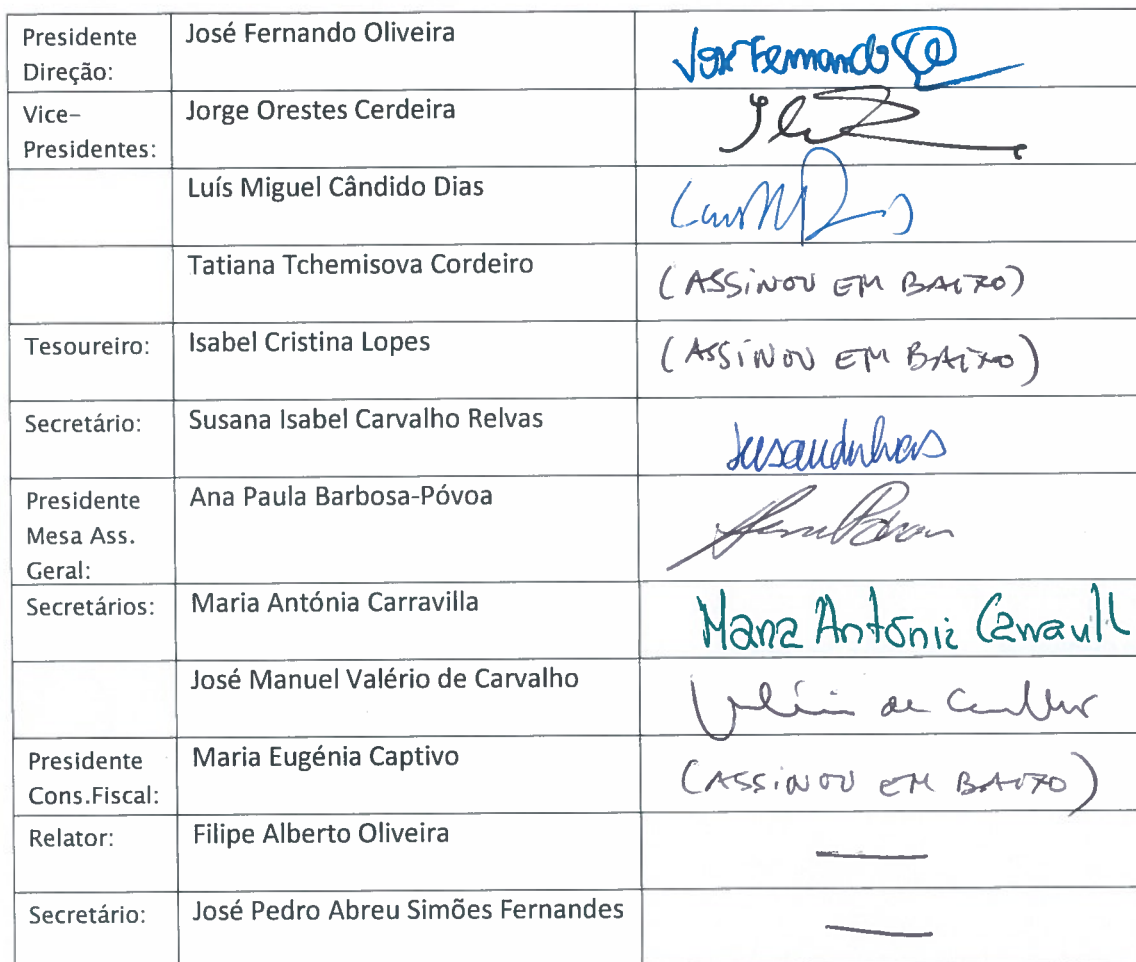 Presidente
Direção:
José Fernando Oliveira
José Fernando
Vice-
Presidentes:
Jorge Orestes Cerdeira
Luís Miguel Cândido Dias
Tatiana Tchemisova Cordeiro
(ASSINOU EM BAIXO)
Tesoureiro:
Isabel Cristina Lopes
(ASSINOU EM BAIXO)
Secretário:
Susana Isabel Carvalho Relvas
Presidente
Mesa Ass.
Geral:
Ana Paula Barbosa-Póvoa
Secretários:
Maria Antónia Carravilla
Maria Antónia Carravilla
José Manuel Valério de Carvalho
Valério de Carvalho
Presidente
Cons.Fiscal:
Maria Eugénia Captivo
(ASSINOU EM BAIXO)
Relator:
Filipe Alberto Oliveira
Secretário:
José Pedro Abreu Simões Fernandes